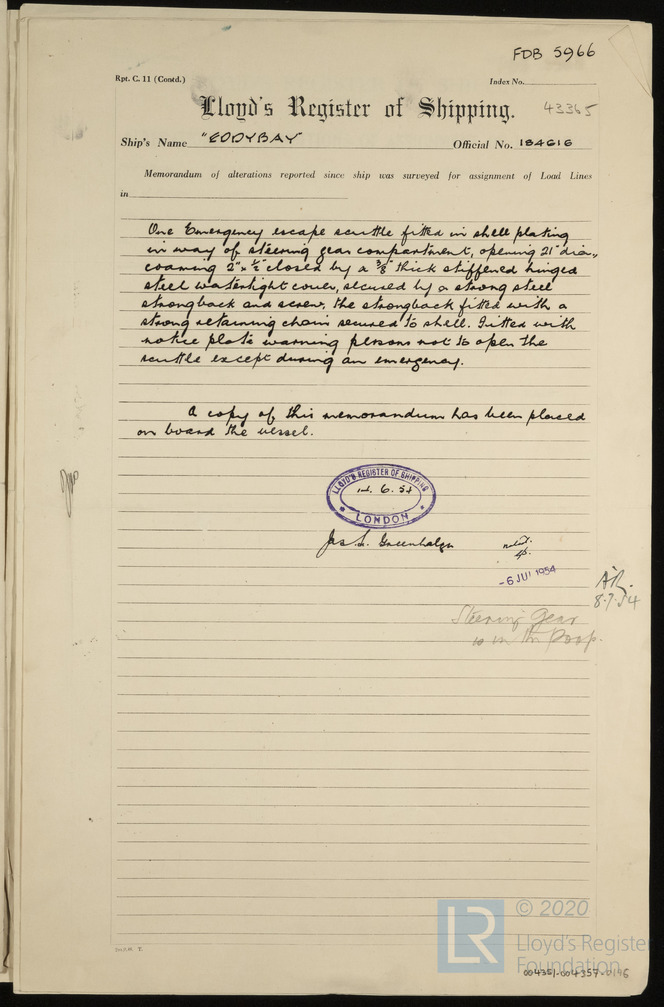 FDB 5966
Rpt. C. 11 (Contd.)
Index No.
Lloyd's Register of Shipping.
43365
Ship's Name "EDDYBAY"
Official No. 184616
Memorandum of alterations reported since ship was surveyed for assignment of Load Lines
in
One Emergency escape scuttle fitted in shell plating
in way of steering gear compartment, opening 21" dia.,
coaming 2" x ½" closed by a ⅜" thick stiffened hinged
steel watertight cover, secured by a strong steel
strongback and screw, the strongback fitted with a
strong retaining chain secured to shell. Fitted with
notice plate warning persons not to open the
scuttle except during an emergency.
A copy of this memorandum has been placed
on board the vessel.
LLOYD'S REGISTER OF SHIPPING
14. 6. 54
LONDON
Jas. S. Greenhalgh
noted.
-6 JUL 1954
8.7.54
Steering Gear
is in the Poop.
LR
© 2020
Lloyd's Register
Foundation
004351-004357-0196